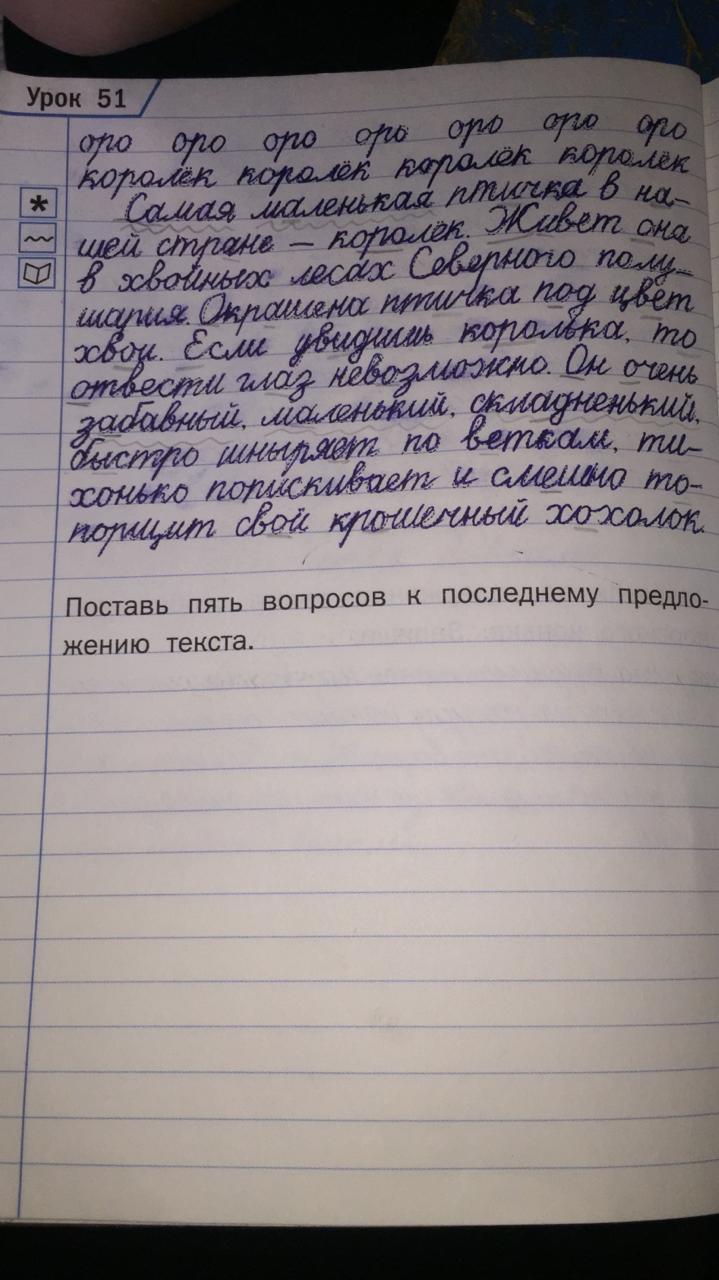 Урок 51
оро оро оро оро оро оро оро
королёк королёк королёк королёк
Самая маленькая птичка в на-
шей стране – королёк. Живёт она
в хвойных лесах Северного полу-
шария. Окрашена птичка под цвет
хвои. Если увидишь королька, то
отвести глаз невозможно. Он очень
забавный, маленький, складненький,
быстро шныряет по веткам, ти-
хонько попискивает и смешно то-
порщит свой крошечный хохолок.
Поставь пять вопросов к последнему предло-
жению текста.